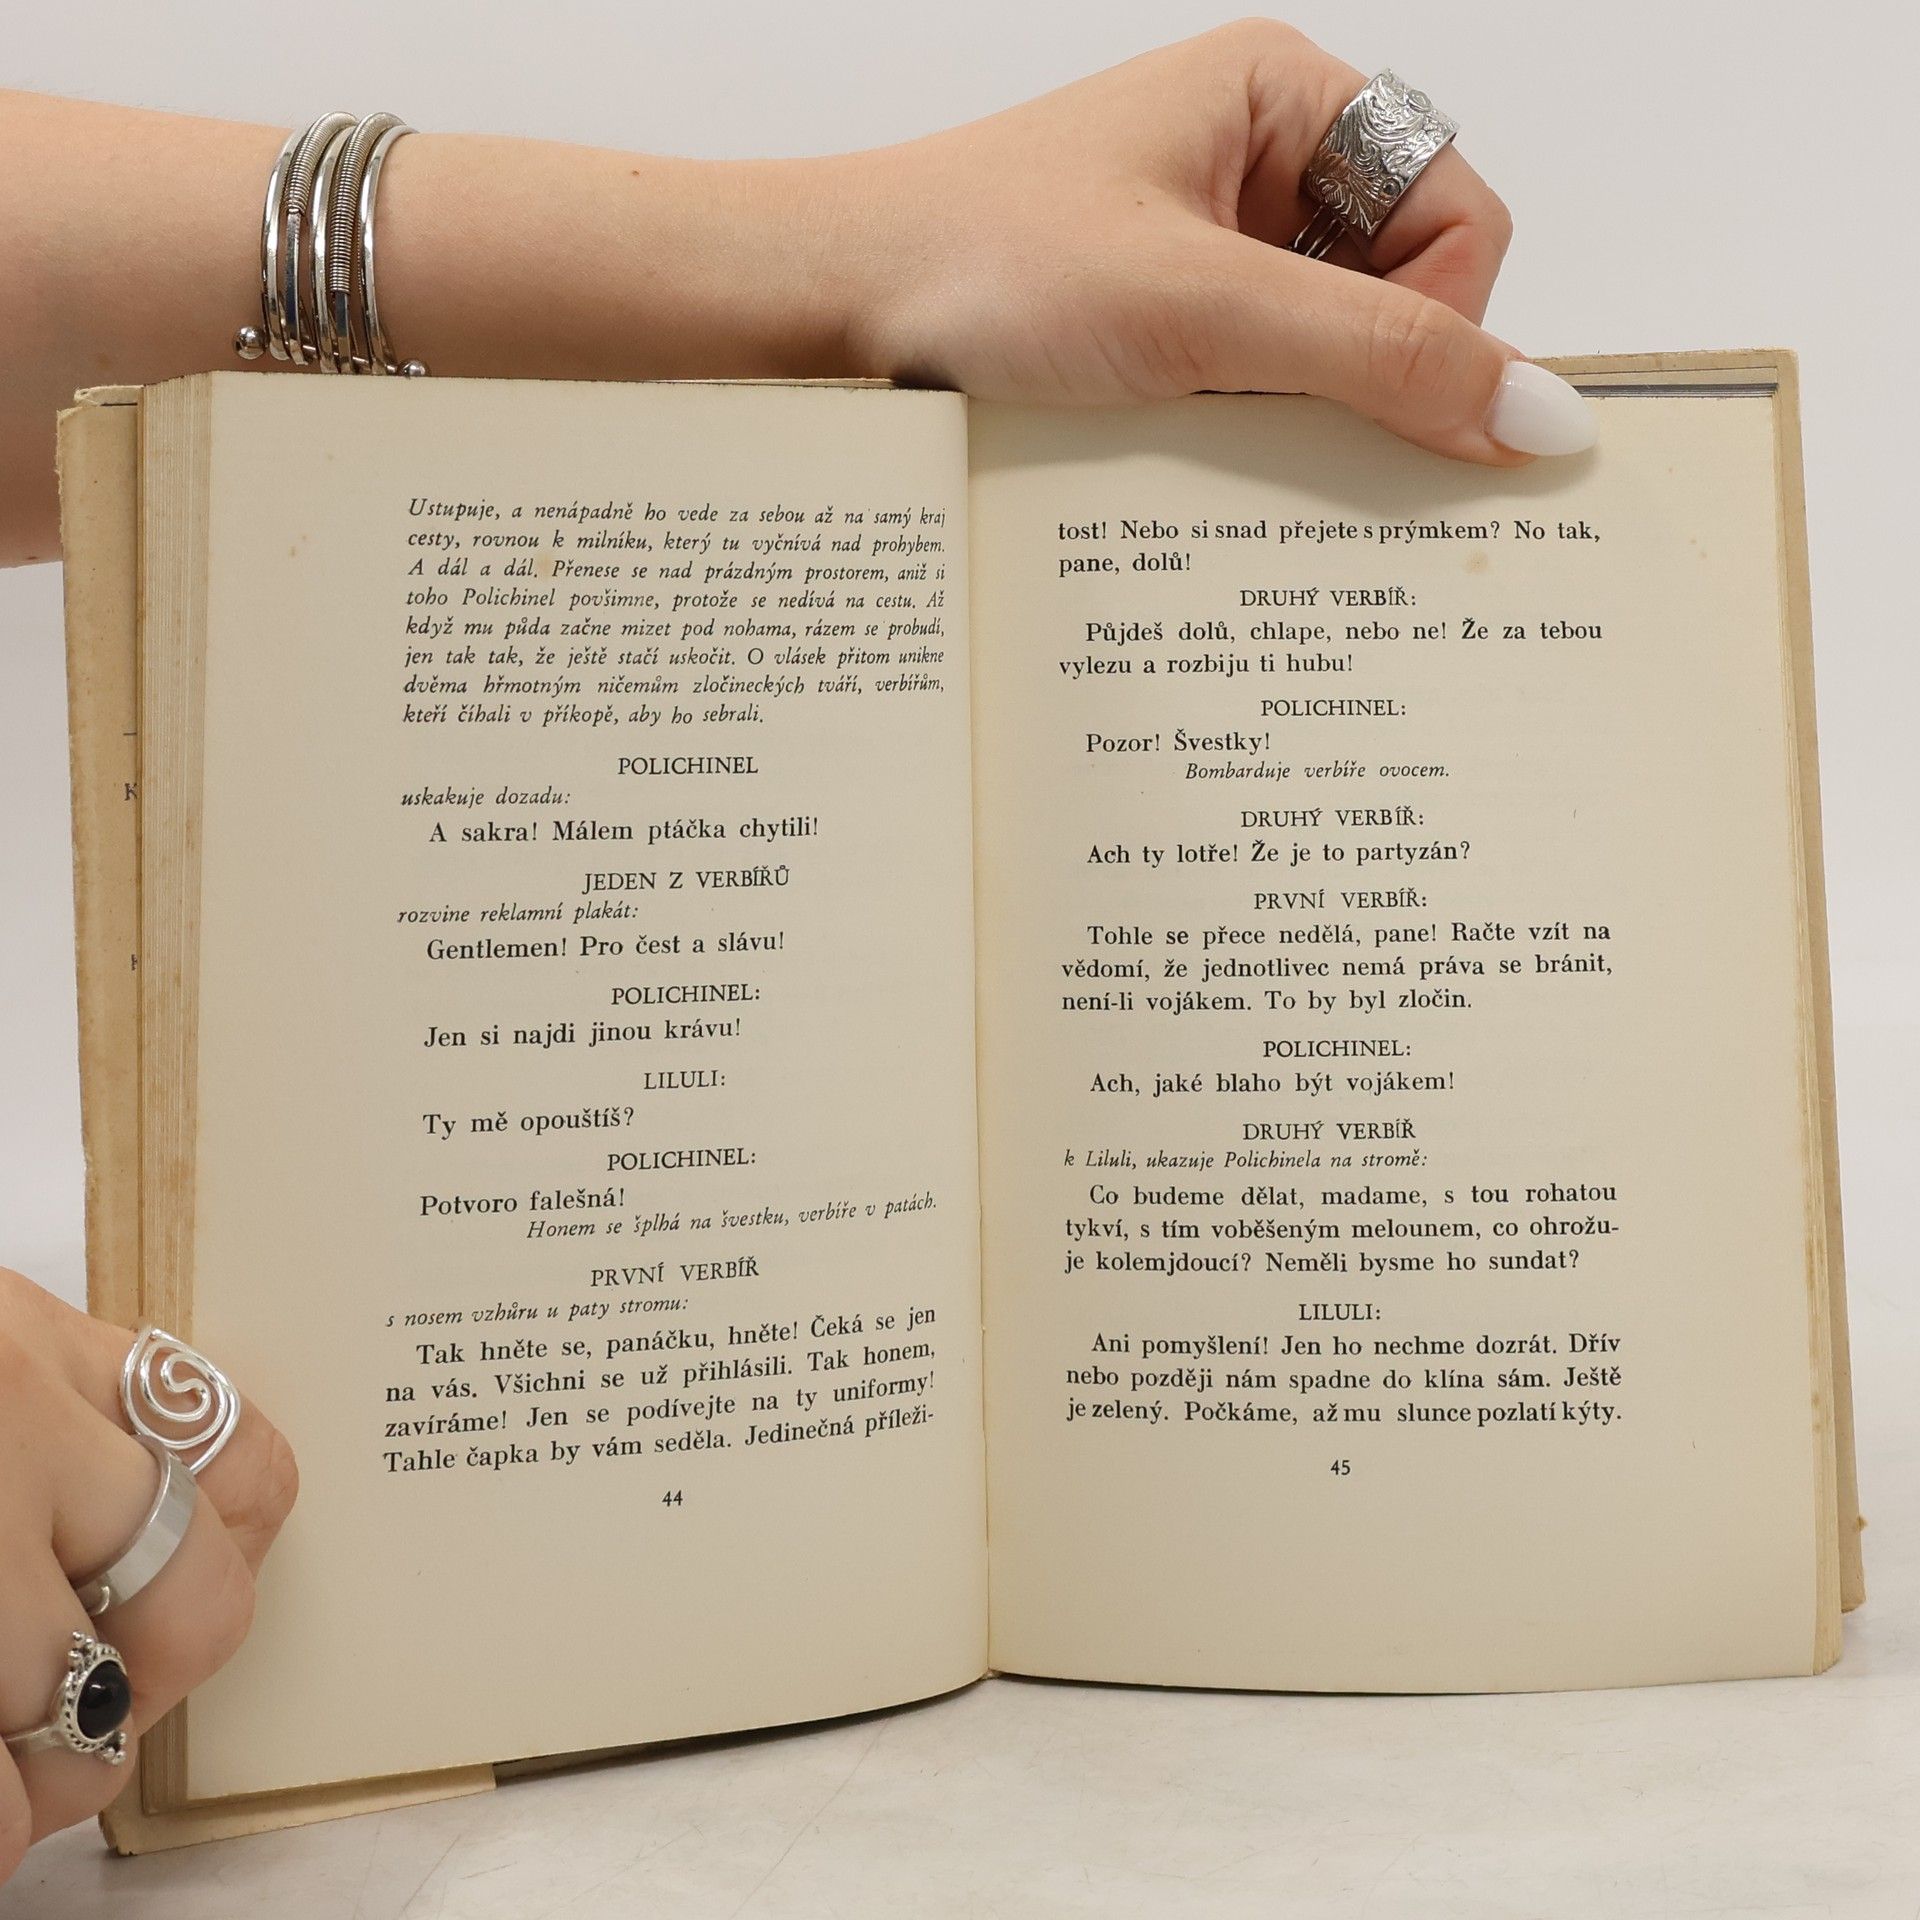 Ustupuje, a nenápadně ho vede za sebou až na samý kraj
cesty, rovnou k milníku, který tu vyčnívá nad prohybem.
A dál a dál. Přenese se nad prázdným prostorem, aniž si
toho Polichinel povšimne, protože se nedívá na cestu. Až
když mu půda začne mizet pod nohama, rázem se probudí,
jen tak tak, že ještě stačí uskočit. O vlásek přitom unikne
dvěma hřmotným ničemům zločineckých tváří, verbířům,
kteří číhali v příkopě, aby ho sebrali.
POLICHINEL
uskakuje dozadu:
A sakra! Málem ptáčka chytili!
JEDEN Z VERBÍŘŮ
rozvine reklamní plakát:
Gentlemen! Pro čest a slávu!
POLICHINEL:
Jen si najdi jinou krávu!
LILULI:
Ty mě opouštíš?
POLICHINEL:
Potvoro falešná!
Honem se šplhá na švestku, verbíře v patách.
PRVNÍ VERBÍŘ
s nosem vzhůru u paty stromu:
Tak hněte se, panáčku, hněte! Čeká se jen
na vás. Všichni se už přihlásili. Tak honem,
zavíráme! Jen se podívejte na ty uniformy!
Tahle čapka by vám seděla. Jedinečná příleži-
44
tost! Nebo si snad přejete s prýmkem? No tak,
pane, dolů!
DRUHÝ VERBÍŘ:
Půjdeš dolů, chlape, nebo ne! Že za tebou
vylezu a rozbiju ti hubu!
POLICHINEL:
Pozor! Švestky!
Bombarduje verbíře ovocem.
DRUHÝ VERBÍŘ:
Ach ty lotře! Že je to partyzán?
PRVNÍ VERBÍŘ:
Tohle se přece nedělá, pane! Račte vzít na
vědomí, že jednotlivec nemá práva se bránit,
není-li vojákem. To by byl zločin.
POLICHINEL:
Ach, jaké blaho být vojákem!
DRUHÝ VERBÍŘ
k Liluli, ukazuje Polichinela na stromě:
Co budeme dělat, madame, s tou rohatou
tykví, s tím voběšeným melounem, co ohrožu-
je kolemjdoucí? Neměli bysme ho sundat?
LILULI:
Ani pomyšlení! Jen ho nechme dozrát. Dřív
nebo později nám spadne do klína sám. Ještě
je zelený. Počkáme, až mu slunce pozlatí kýty.
45